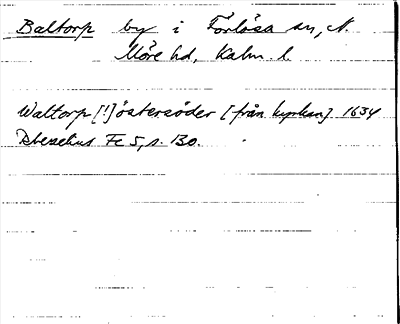 Baltorp by i Förlösa sn, N.
Möre hd, Kalm. l.
Waltorp [!] östersöder [från kyrkan] 1634
Rhezelius Fc 5, s. 130.